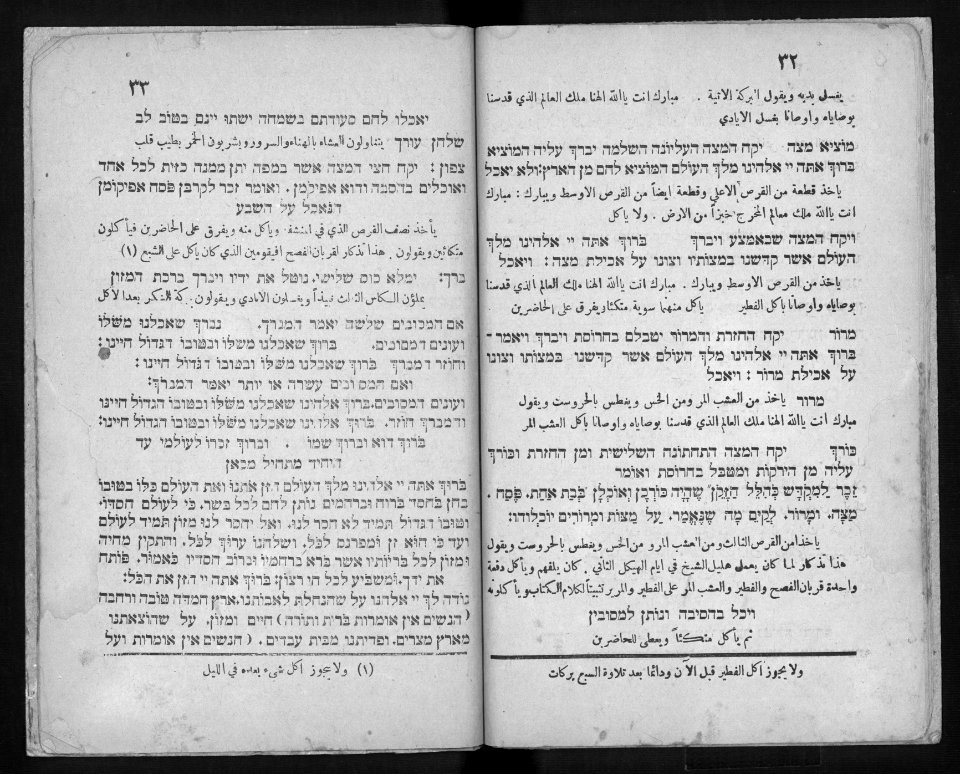 ٣٢
يغسل يديه ويقول البركة الاتية . مبارك انت يا الله الهنا ملك العالم الذي قدسنا
بوصاياه واوصانا بغسل الايادي
מוציא מצה יקח המצה העליונה השלמה יברך עליה המוציא
בּרוּך אתּה יי אלהינו מלך העולם המוציא לחם מן הארץ: ולא יאכל
ياخذ قطعة من القرص الاعلى وقطعة ايضاً من القرص الاوسط ويبارك : مبارك
انت يا الله ملك العالم المخرج خبزاً من الارض . ولا ياكل
ויקח המצה שבאמצע ויברך בּרוּך אתּה יי אלהינו מלך
העולם אשר קדשנו במצותיו וצונו על אכילת מצה : ויאכל
ياخذ من القرص الاوسط ويبارك . مبارك انت يا الله الهنا ملك العالم الذي قدسنا
بوصاياه واوصانا باكل الفطير ياكل منهما سوية متكئا ويفرق على الحاضرين
מרור יקח החזרת והמרור יטבלם בחרוסת ויברך ויאמר -
בּרוּך אתּה יי אלהינו מלך העולם אשר קדשנו במצותו וצונו
על אכילת מרור : ויאכל
מרור ياخذ من العشب المر ومن الخس ويغطس بالحروست ويقول
مبارك انت يا الله الهنا ملك العالم الذي قدسنا بوصاياه واوصانا باكل العشب المر
כורך יקח המצה התחתונה השלישית ומן החזרת וכורך
עליה מן הירקות ומטבל בחרוסת ואומר
זכר למקדש כהלל הזקן שהיה כורכן ואוכלן בבת אחת. פסח .
מצה. ומרור. לקים מה שנאמר. על מצות ומרורים יוכלוהו:
ياخذ من القرص الثالث ومن العشب المر ومن الخس ويغطس بالحروست ويقول
هذا تذكار لما كان يعمل هليل الشيخ في ايام الهيكل الثاني . كان يلفهم وياكل دفعة
واحدة قربان الفصح والفطير والعشب المر على الفطير والمرير تثبيتاً لكلام الكتاب وياكلونه
ויכל בהסיבה ונותן למסובין
ثم ياكل متكئاً ويعطي للحاضرين
ولا يجوز اكل الفطير قبل الآن ودائما بعد تلاوة السبع بركات
٣٣
יאכלו לחם סעודתם בשמחה ישתו יינם בטוב לב
שלחן עורך يتناولون العشاء بالهناء والسرور ويشربون الخمر بطيب قلب
צפון : יקח חצי המצה אשר במפה יתן ממנה כזית לכל אחד
ואוכלים בהסבה והוא אפיקומן. ואומר זכר לקרבן פסח אפיקומן
הנאכל על השבע
ياخذ نصف القرص الذي في المنشفة وياكل منه ويفرق على الحاضرين فيأكلون
متكائين ويقولون . هذا تذكار لقربان الفصح افيقومين الذي كان ياكل على الشبع (١)
ברך: ימלא כוס שלישי. נוטל את ידיו ויברך ברכת המזון
يملؤن الكاس الثالث نبيذاً ويغسلون الايادي ويقولون بركة الشكر بعد الاكل
אם המסובים שלשה יאמר המברך. נברך שאכלנו משלו
ועונים המסובים. בּרוּך שאכלנו משלו ובטובו הגדול חיינו:
וחוזר המברך בּרוּך שאכלנו משלו ובטובו הגדול חיינו :
ואם המסובים עשרה או יותר יאמר המברך:
ועונים המסובים. בּרוּך אלהינו שאכלנו משלו ובטובו הגדול חיינו
והמברך חוזר. בּרוּך אלהינו שאכלנו משלו ובטובו הגדול חיינו:
בּרוּך הוא וברוך שמו . וברוך זכרו לעולמי עד
היחיד מתחיל מכאן
בּרוּך אתּה יי אלהינו מלך העולם הזן אתנו ואת העולם כלו בטובו
בחן בחסד ברוח וברחמים נותן לחם לכל בשר. כי לעולם חסדו.
וטובו הגדול תמיד לא חסר לנו. ואל יחסר לנו מזון תמיד לעולם
ועד כי הוא זן ומפרנס לכל. ושלחנו ערוך לכל. והתקין מחיה
ומזון לכל בריותיו אשר ברא ברחמיו וברוב חסדיו כאמור. פותח
את ידך. ומשביע לכל חי רצון: בּרוּך אתּה יי הזן את הכל:
נודה לך יי אלהנו על שהנחלת לאבותנו. ארץ חמדה טובה ורחבה
(הנשים אין אומרות ברית ותורה) חיים ומזון. על שהוצאתנו
מארץ מצרים. ופדיתנו מבית עבדים. (הנשים אין אומרות ועל
(١) ولا يجوز اكل شيء بعده في الليل